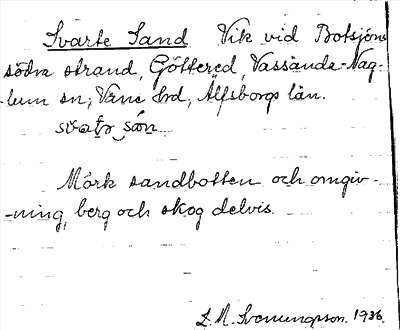 Svarte Sand Vik vid Botsjöns
södra strand, Göttered, Vassända-Nag-
-lum sn, Väne hrd, Älfsborgs län.
Mörk sandbotten och omgiv-
-ning, berg och skog delvis.
1936.